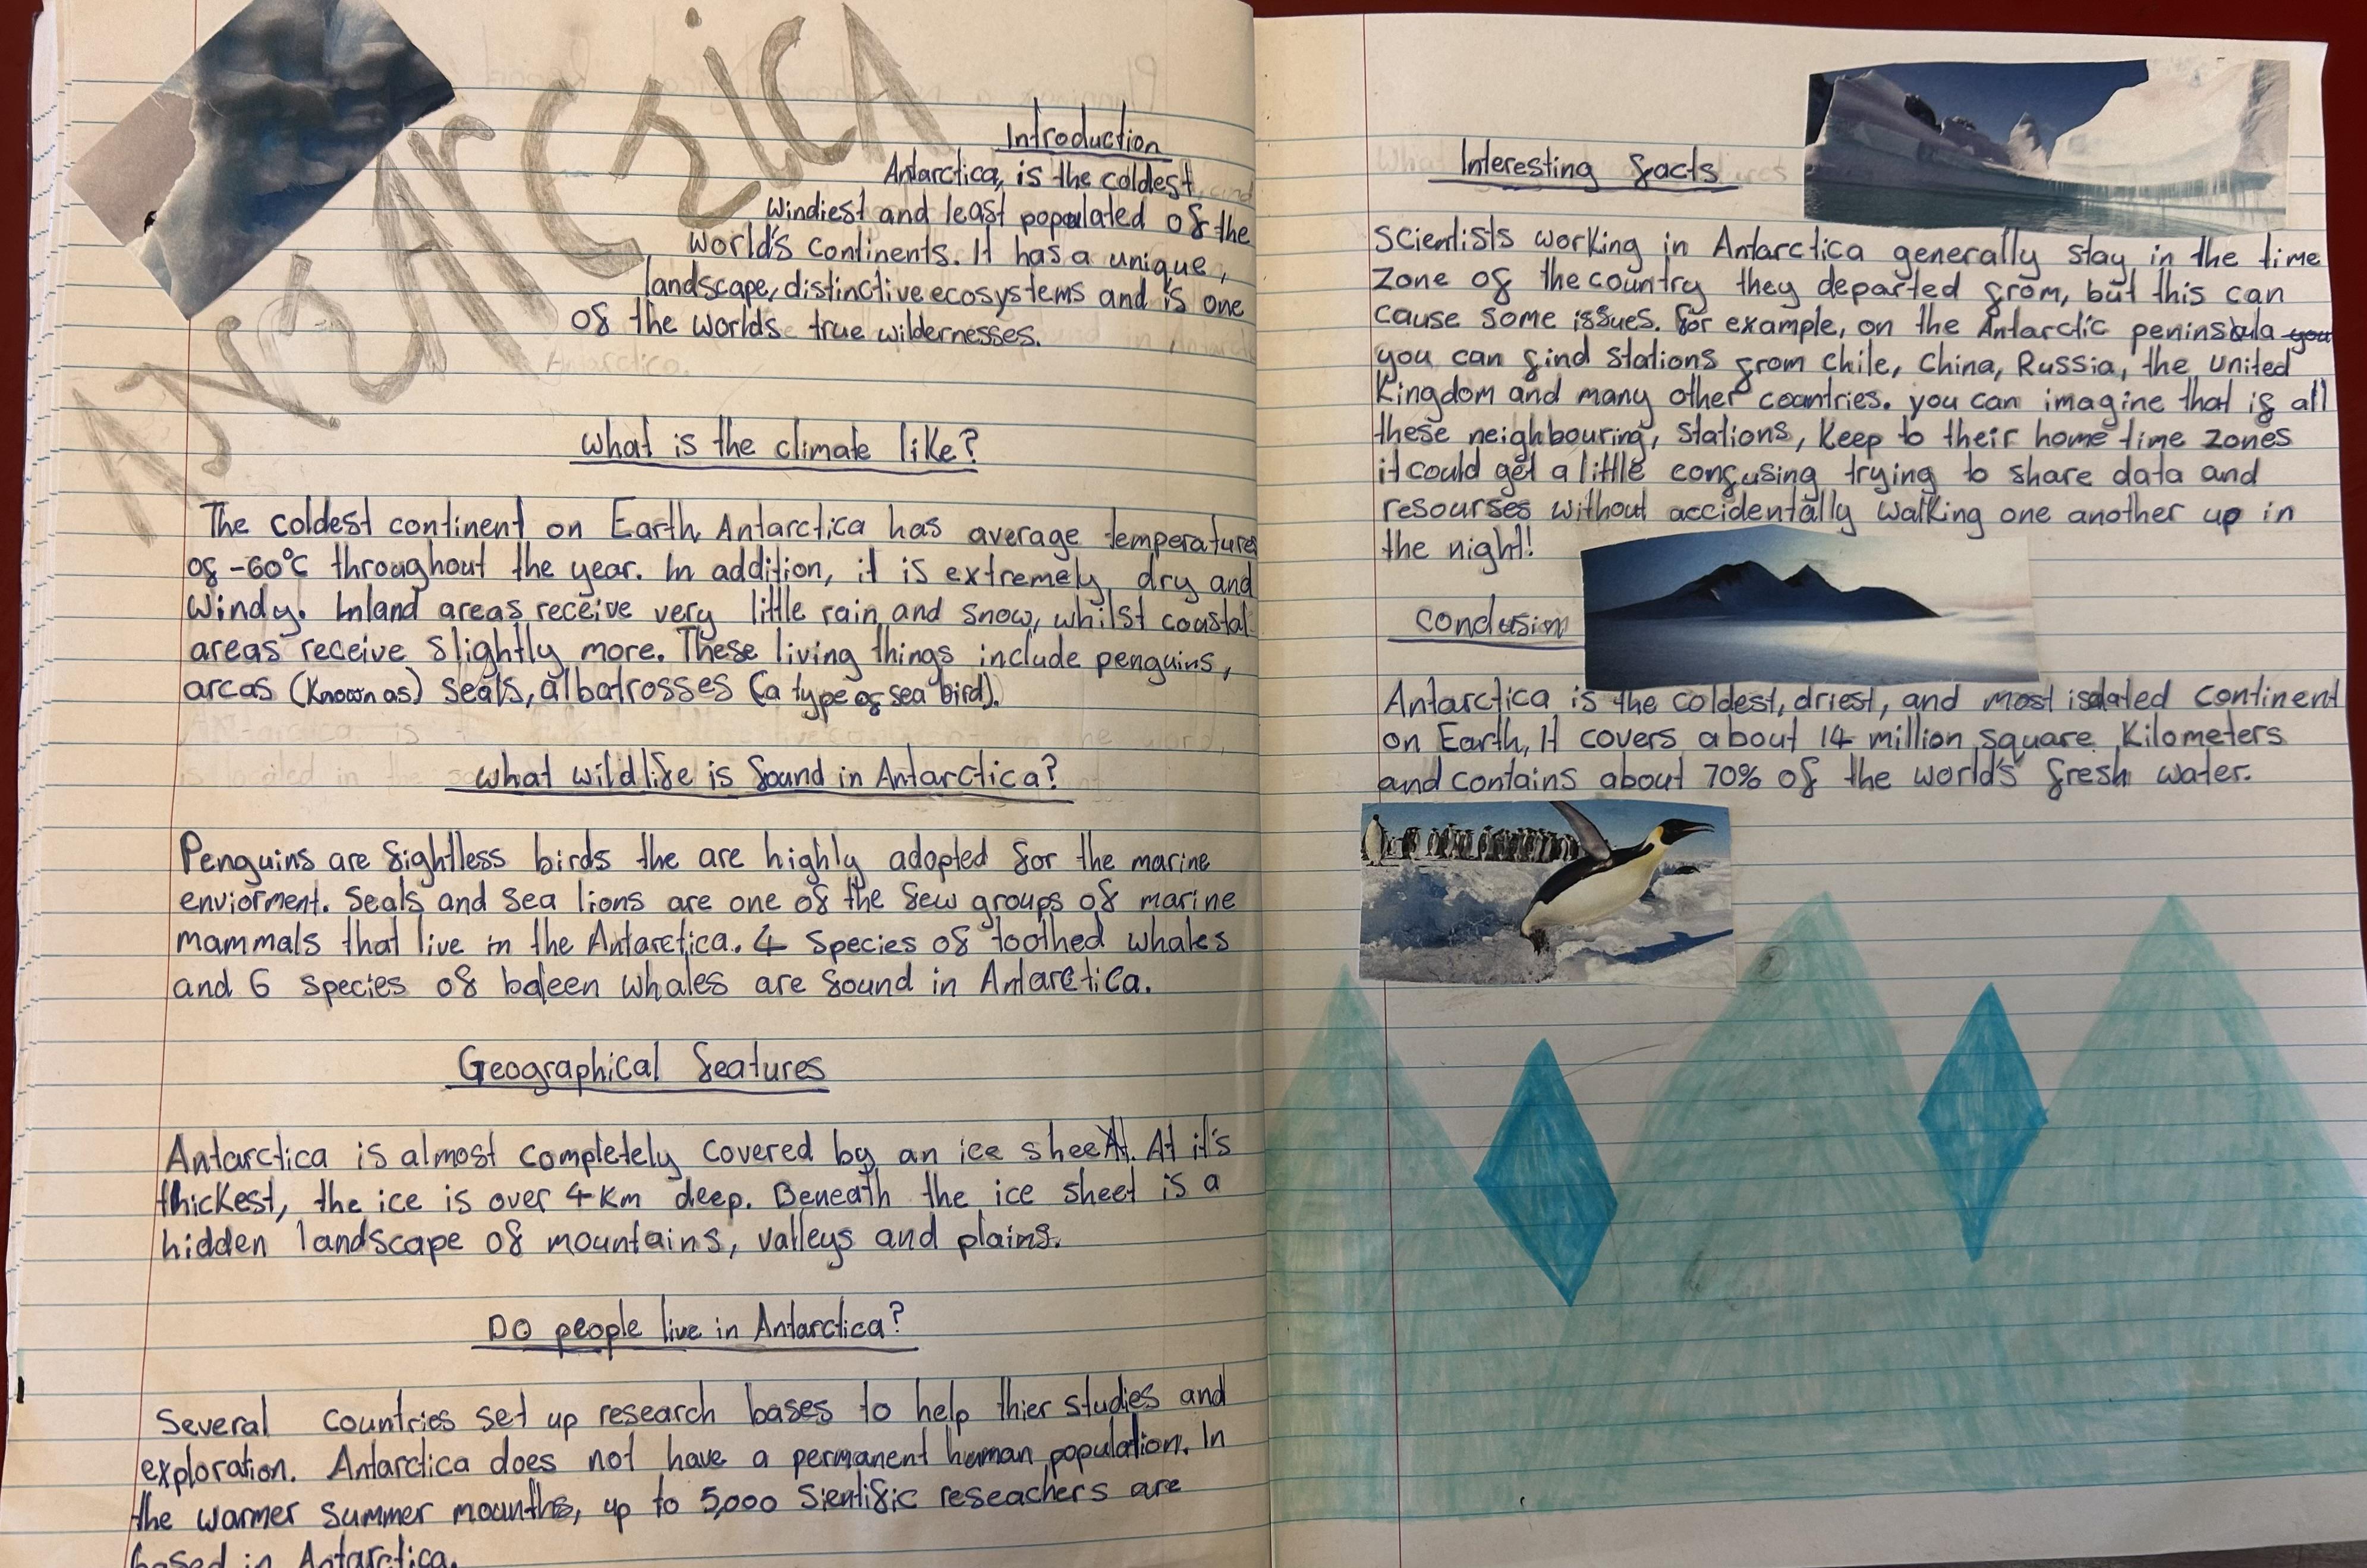 ANTARCTICA
Introduction
Antarctica, is the coldest,
windiest and least populated of the
world's continents. It has a unique,
landscape, distinctive ecosystems and is one
of the worlds true wildernesses.
What is the climate like?
The coldest continent on Earth, Antarctica has average temperatures
of -60°C throughout the year. In addition, it is extremely dry and
windy. Inland areas receive very little rain and snow, whilst coastal
areas receive slightly more. These living things include penguins,
arcas (known as) seals, albatrosses (a type of sea bird).
What wildlife is found in Antarctica?
Penguins are fightless birds the are highly adopted for the marine
enviorment. Seals and sea lions are one of the few groups of marine
mammals that live in the Antarctica. 4 species of toothed whales
and 6 species of baleen whales are found in Antarctica.
Geographical features
Antarctica is almost completely covered by an ice sheet. At it's
thickest, the ice is over 4 km deep. Beneath the ice sheet is a
hidden landscape of mountains, valleys and plains.
Do people live in Antarctica?
Several countries set up research bases to help thier studies and
exploration. Antarctica does not have a permanent human population. In
the warmer summer mounths, up to 5,000 Sientific reseachers are
based in Antarctica.
Interesting facts
Scientists working in Antarctica generally stay in the time
zone of the country they departed from, but this can
cause some issues. for example, on the Antarctic peninsula you
you can find stations from Chile, China, Russia, the United
Kingdom and many other countries. you can imagine that if all
these neighbouring, stations, keep to their home time zones
it could get a little confusing trying to share data and
resourses without accidentally walking one another up in
the night!
Conclusion
Antarctica is the coldest, driest, and most isolated continent
on Earth, It covers about 14 million square kilometers
and contains about 70% of the world's fresh water.